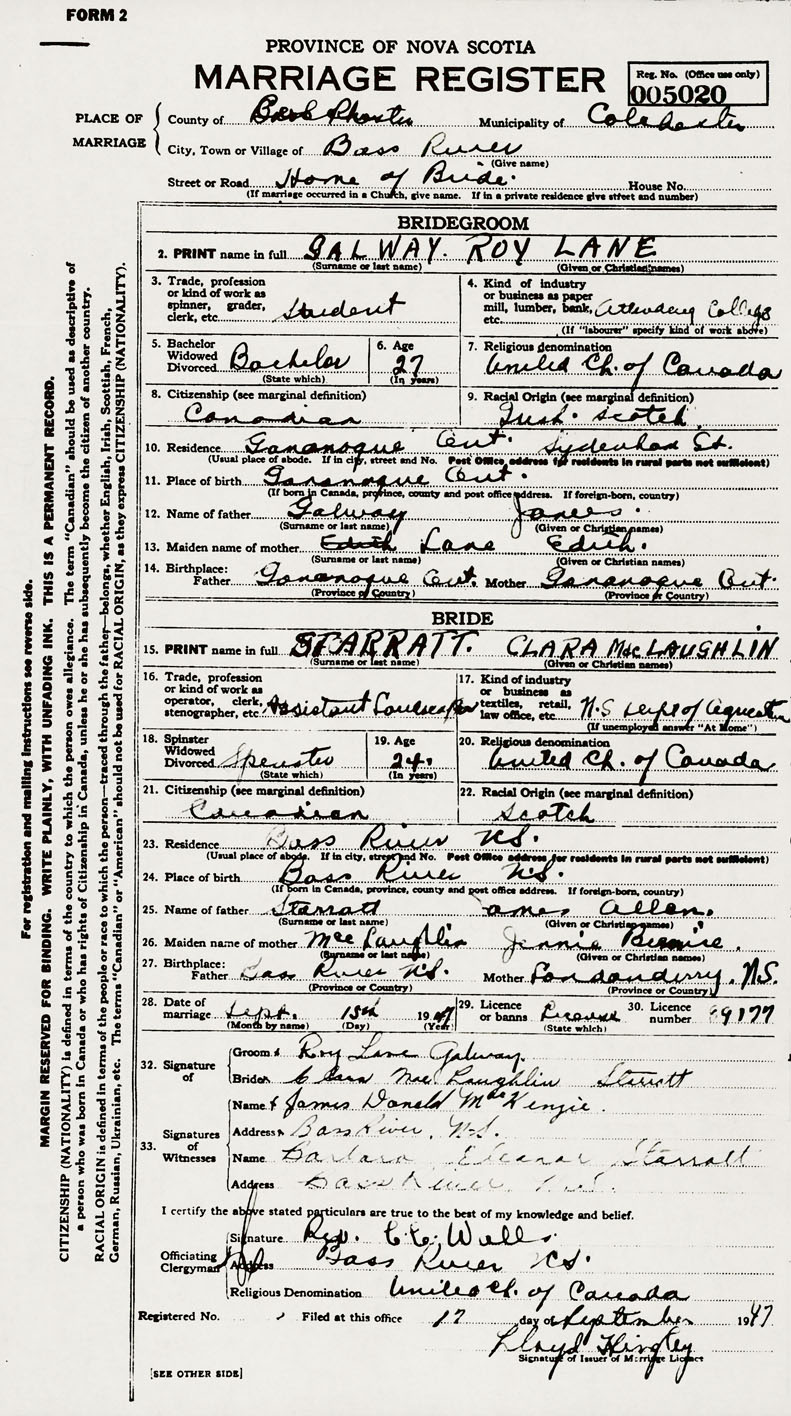 FORM 2
PROVINCE OF NOVA SCOTIA
MARRIAGE REGISTER
Reg. No. (Office use only)
005020
PLACE OF MARRIAGE
County of Municipality of Colchester
City, Town or Village of Bass River
(Give name)
Street or Road Home of Bride. House No.
(If marriage occurred in a Church, give name. If in a private residence give street and number)
BRIDEGROOM
2. PRINT name in full GALWAY. ROY LANE
(Surname or last name) (Given or Christian names)
3. Trade, profession or kind of work as spinner, grader, clerk, etc. Student
4. Kind of industry or business as paper mill, lumber, bank, etc. Attending College
(If "labourer" specify kind of work above)
5. Bachelor Widowed Divorced Bachelor
(State which)
6. Age 27
(In years)
7. Religious denomination United Ch. of Canada
8. Citizenship (see marginal definition) Canadian
9. Racial Origin (see marginal definition) Irish. Scotch
10. Residence Gananoque Ont. Sydenham St.
(Usual place of abode. If in city, street and No. Post Office address for residents in rural parts not sufficient)
11. Place of birth Gananoque Ont.
(If born in Canada, province, county and post office address. If foreign-born, country)
12. Name of father Galway James.
(Surname or last name) (Given or Christian names)
13. Maiden name of mother Edith Lane Edith.
(Surname or last name) (Given or Christian names)
14. Birthplace: Father Gananoque Ont. Mother Gananoque Ont.
(Province or Country) (Province or Country)
BRIDE
15. PRINT name in full STARRATT. CLARA MacLAUGHLIN
(Surname or last name) (Given or Christian names)
16. Trade, profession or kind of work as operator, clerk, stenographer, etc. Assistant Landscaper
17. Kind of industry or business as textiles, retail, law office, etc. N.S Dept of
(If unemployed answer "At Home")
18. Spinster Widowed Divorced Spinster
(State which)
19. Age 24.
(In years)
20. Religious denomination United Ch. of Canada
21. Citizenship (see marginal definition) Canadian
22. Racial Origin (see marginal definition) Scotch
23. Residence Bass River N.S.
(Usual place of abode. If in city, street and No. Post Office address for residents in rural parts not sufficient)
24. Place of birth Bass River N.S.
(If born in Canada, province, county and post office address. If foreign-born, country)
25. Name of father Starratt James Allen.
(Surname or last name) (Given or Christian names)
26. Maiden name of mother MacLaughlin Jennie Bernice.
(Surname or last name) (Given or Christian names)
27. Birthplace: Father Bass River N.S. Mother Londonderry, N.S.
(Province or Country) (Province or Country)
28. Date of marriage Sept. 15th 1947
(Month by name) (Day) (Year)
29. Licence or banns
(State which)
30. Licence number 89177
32. Signature of
Groom Roy Lane Galway.
Bride Clara MacLaughlin Starratt
33. Signatures of Witnesses
Name James Donald MacKenzie.
Address Bass River, N.S.
Name Barbara Eleanor Starratt
Address Bass River, N.S.
I certify the above stated particulars are true to the best of my knowledge and belief.
Officiating Clergyman
Signature Rev. C.C. Wells.
Address Bass River N.S.
Religious Denomination United Ch. of Canada
Registered No. Filed at this office 17 day of September 1947
Lloyd Hingley
Signature of Issuer of Marriage Licence
[SEE OTHER SIDE]
For registration and mailing instructions see reverse side.
MARGIN RESERVED FOR BINDING. WRITE PLAINLY, WITH UNFADING INK. THIS IS A PERMANENT RECORD.
CITIZENSHIP (NATIONALITY) is defined in terms of the country to which the person owes allegiance. The term "Canadian" should be used as descriptive of
a person who was born in Canada or who has rights of Citizenship in Canada, unless he or she has subsequently become the citizen of another country.
RACIAL ORIGIN is defined in terms of the people or race to which the person—traced through the father—belongs, whether English, Irish, Scottish, French,
German, Russian, Ukrainian, etc. The terms "Canadian" or "American" should not be used for RACIAL ORIGIN, as they express CITIZENSHIP (NATIONALITY).